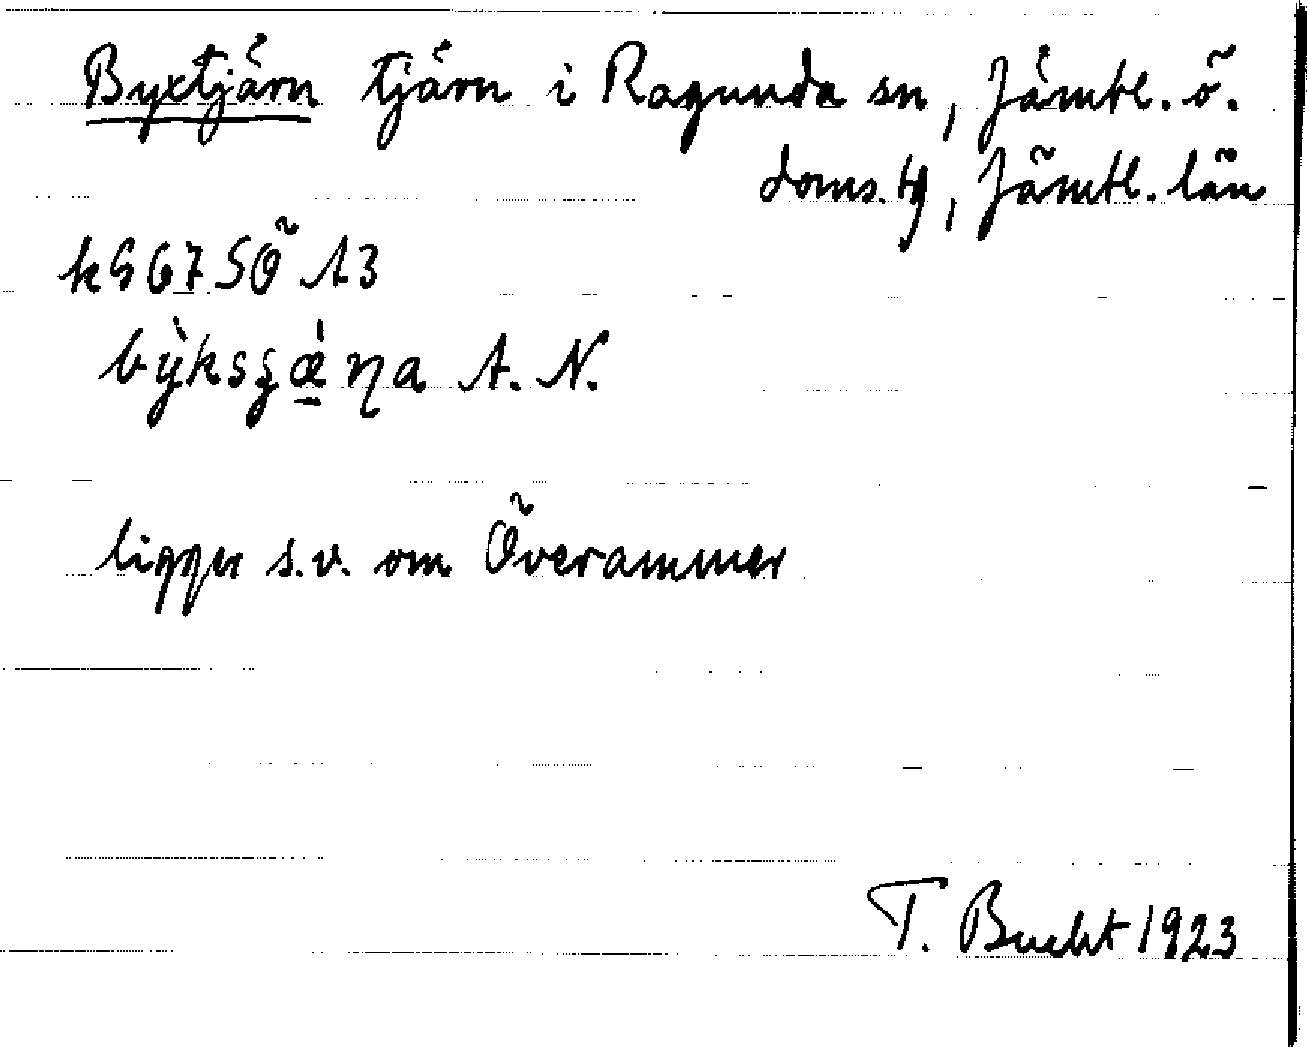 Byxtjärn tjärn i Ragunda sn, Jämtl. ö.
doms. tg, Jämtl. län
kG 67 SÖ A3
A. N.
ligger s.v. om Överammer
T. Bucht 1923